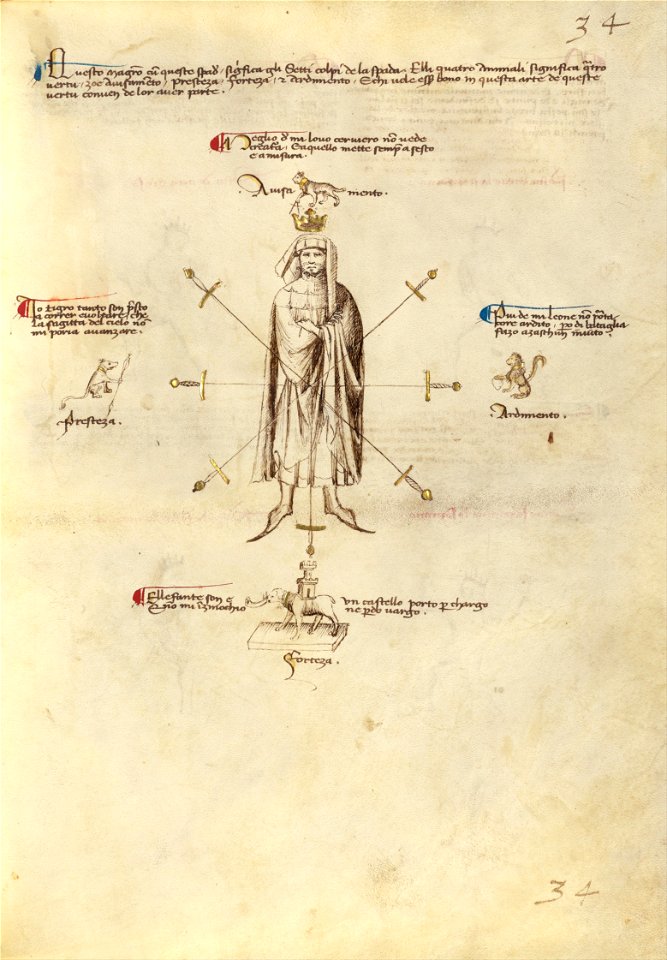 34
Questo magro cum queste spade significa gli Setti colpi de la spada. Elli quatro animali significa quatro
vertu, zoe avisamento, presteza, forteza, & ardimento. E chi vole esser bono in questa arte de queste
vertu conven de lor aver parte.
Meglio de mi lovo cerviero non vede
creatura, E aquello mette sempre a sesto
e a misura.
Avisa mento.
Io tigro tanto son presto
a correr e voltare, che
la sagitta del cielo non
mi poria avanzare.
Più de mi leone non porta
core ardito, però di bataglia
fazo a zaschun invito.
Presteza.
Ardimento.
Ellefante son e un castello porto per chargo
E non mi inzinochio ne perdo vargo.
Forteza.
34